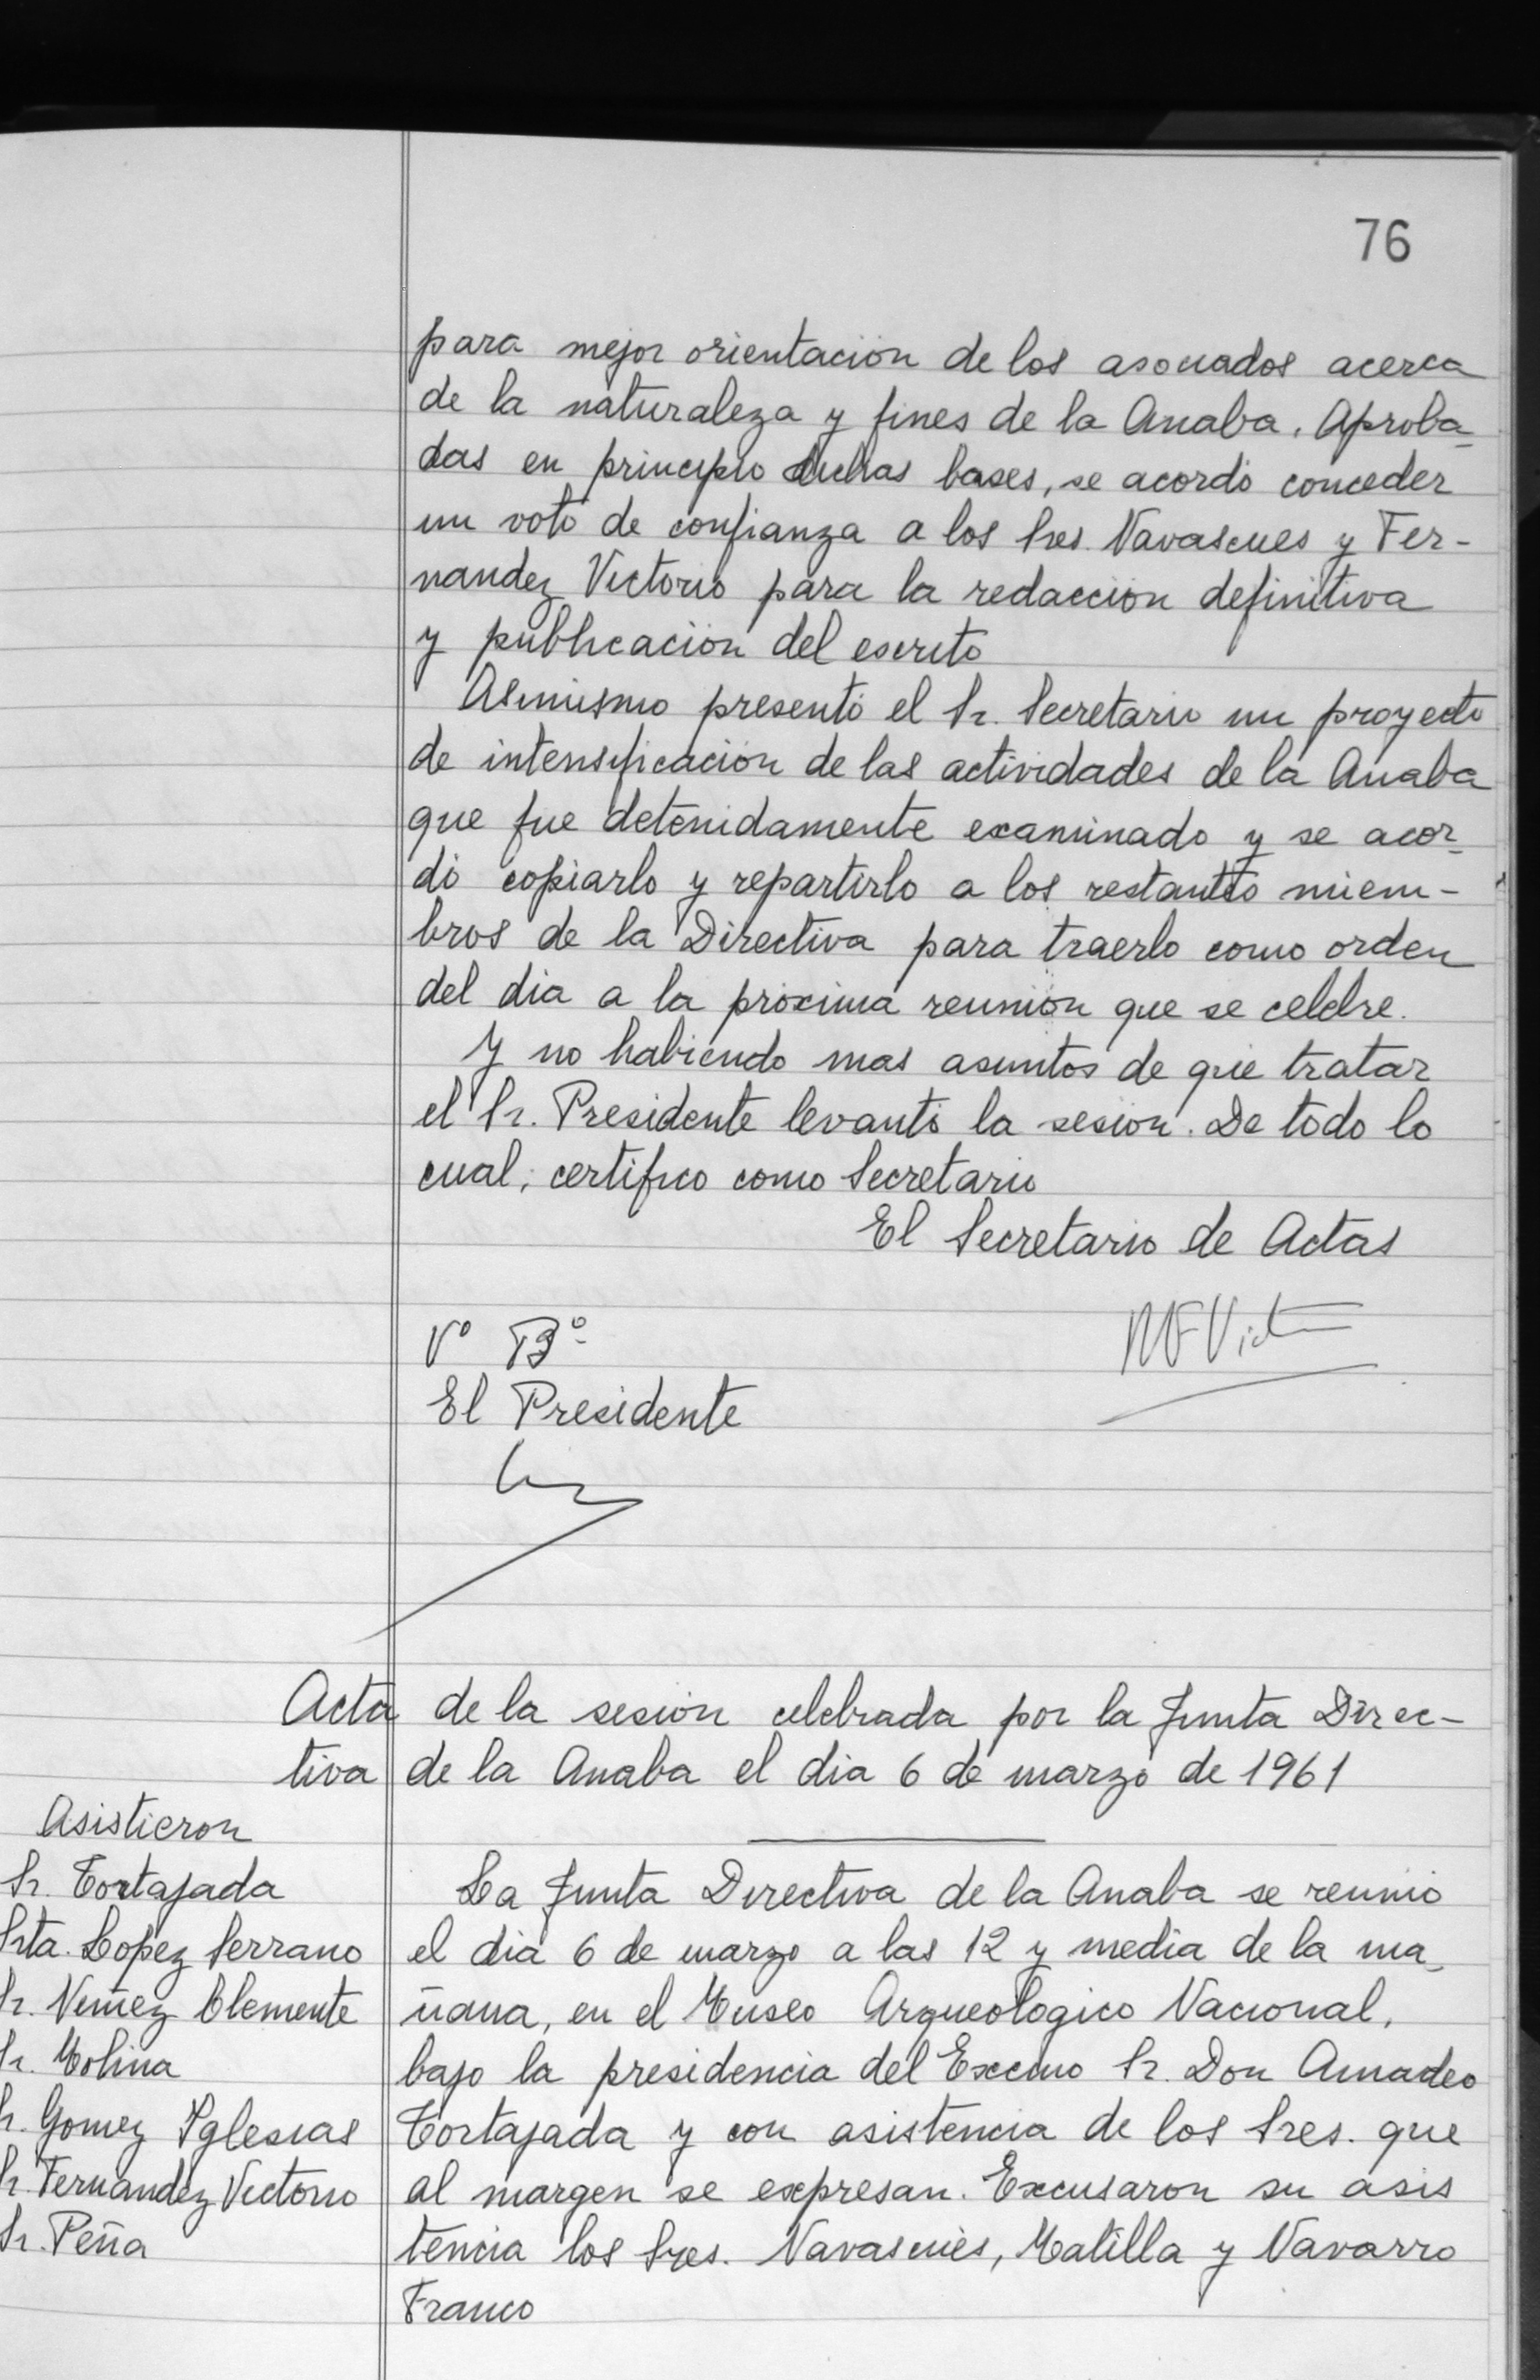 76
para mejor orientación de los asociados acerca
de la naturaleza y fines de la Anaba. Aproba-
das en principio dichas bases, se acordó conceder
un voto de confianza a los Sres. Navascues y Fer-
nandez Victorio para la redacción definitiva
y publicación del escrito
Asimismo presentó el Sr. Secretario un proyecto
de intensificación de las actividades de la Anaba
que fue detenidamente examinado y se acor-
dó copiarlo y repartirlo a los restantes miem-
bros de la Directiva para traerlo como orden
del dia a la próxima reunión que se celebre.
Y no habiendo mas asuntos de que tratar
el Sr. Presidente levantó la sesión. De todo lo
cual, certifico como Secretario
El Secretario de Actas
Vº Bº
El Presidente
Acta de la sesión celebrada por la Junta Direc-
tiva de la Anaba el dia 6 de marzo de 1961
Asistieron
Sr. Tortajada
Srta. Lopez Serrano
Sr. Nuñez Clemente
Sr. Molina
Sr. Gomez Yglesias
Sr. Fernandez Victorio
Sr. Peña
La Junta Directiva de la Anaba se reunió
el dia 6 de marzo a las 12 y media de la ma-
ñana, en el Museo Arqueologico Nacional,
bajo la presidencia del Excmo Sr. Don Amadeo
Tortajada y con asistencia de los Sres. que
al margen se expresan. Excusaron su asis
tencia los Sres. Navascués, Matilla y Navarro
Franco